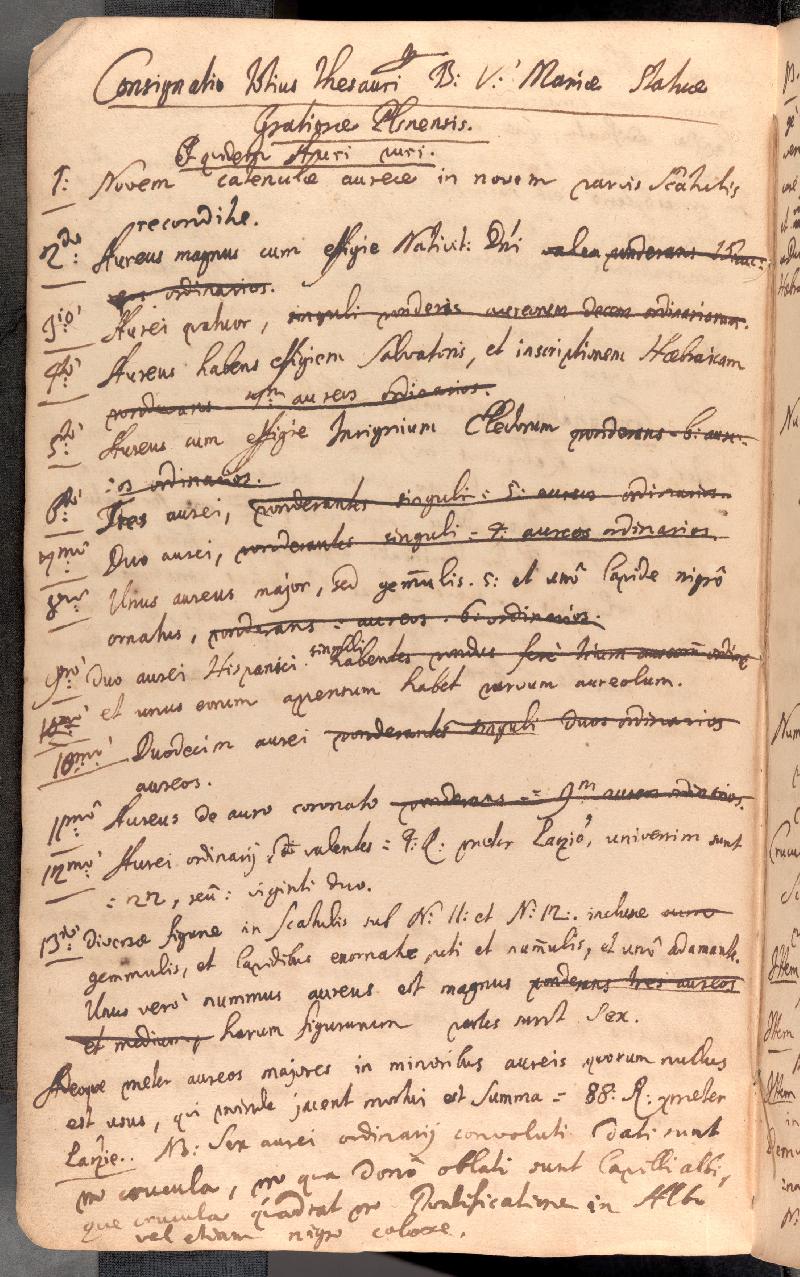 Consignatio totius Thesauri B: V: Mariæ Statuæ
Gratiosæ Plsnensis.
Et quidem Auri puri.
1: Novem catenulæ aureæ in novem parvis Scatulis
reconditæ.
2do Aureus magnus cum effigie Nativit: Dni valen ponderans 15 au:
eos ordinarios.
3io Aurei quatuor, singuli ponderis aureorum decem ordinariorum.
4to Aureus habens effigiem Salvatoris, et inscriptionem Hæbraicam
ponderans aureos ordinarios.
5to Aureus cum effigie Insignium Electorum ponderans 6: aure:
:os ordinarios.
6to Tres aurei, ponderantes singuli = 5: aureos ordinarios.
7mo Duo aurei, ponderantes singuli = 4: aureos ordinarios.
8vo Unus aureus major, sed gemulis. 5: et uno lapide nigro
ornatus, ponderans = aureos. 6: ordinarios.
9no Duo aurei Hispanici singuli habentes pondus fere trium aureorum
et unus eorum apensum habet parvum aureolum.
10mo Duodecim aurei ponderantes singuli duos ordinarios
aureos.
11mo Aureus de auro coronato ponderans = 9m aureos ordinarios.
12mo Aurei ordinarij valentes = 4: R: præter Lagio, universim sunt
= 22, seu: viginti duo.
13tio Diversæ figuræ in Scatulis sub N: 11: et N: 12: inclusæ
gemmulis, et lapidibus exornatæ, uti et numulis, et uno adamante.
Unus vero nummus aureus est magnus ponderans tres aureos
et medium, harum figurarum partes sunt Sex.
Adeoque præter aureos majores in minoribus aureis quorum nullus
est usus, qui proinde jacent mortui est Summa = 88: R: præter
Lagie.. NB: Sex aurei ordinarij convoluti dati sunt
pro crucula, pro qua dono oblati sunt Capilli albi,
quæ crucula quadrat pro Pontificatione in Albo
vel etiam nigro colore.